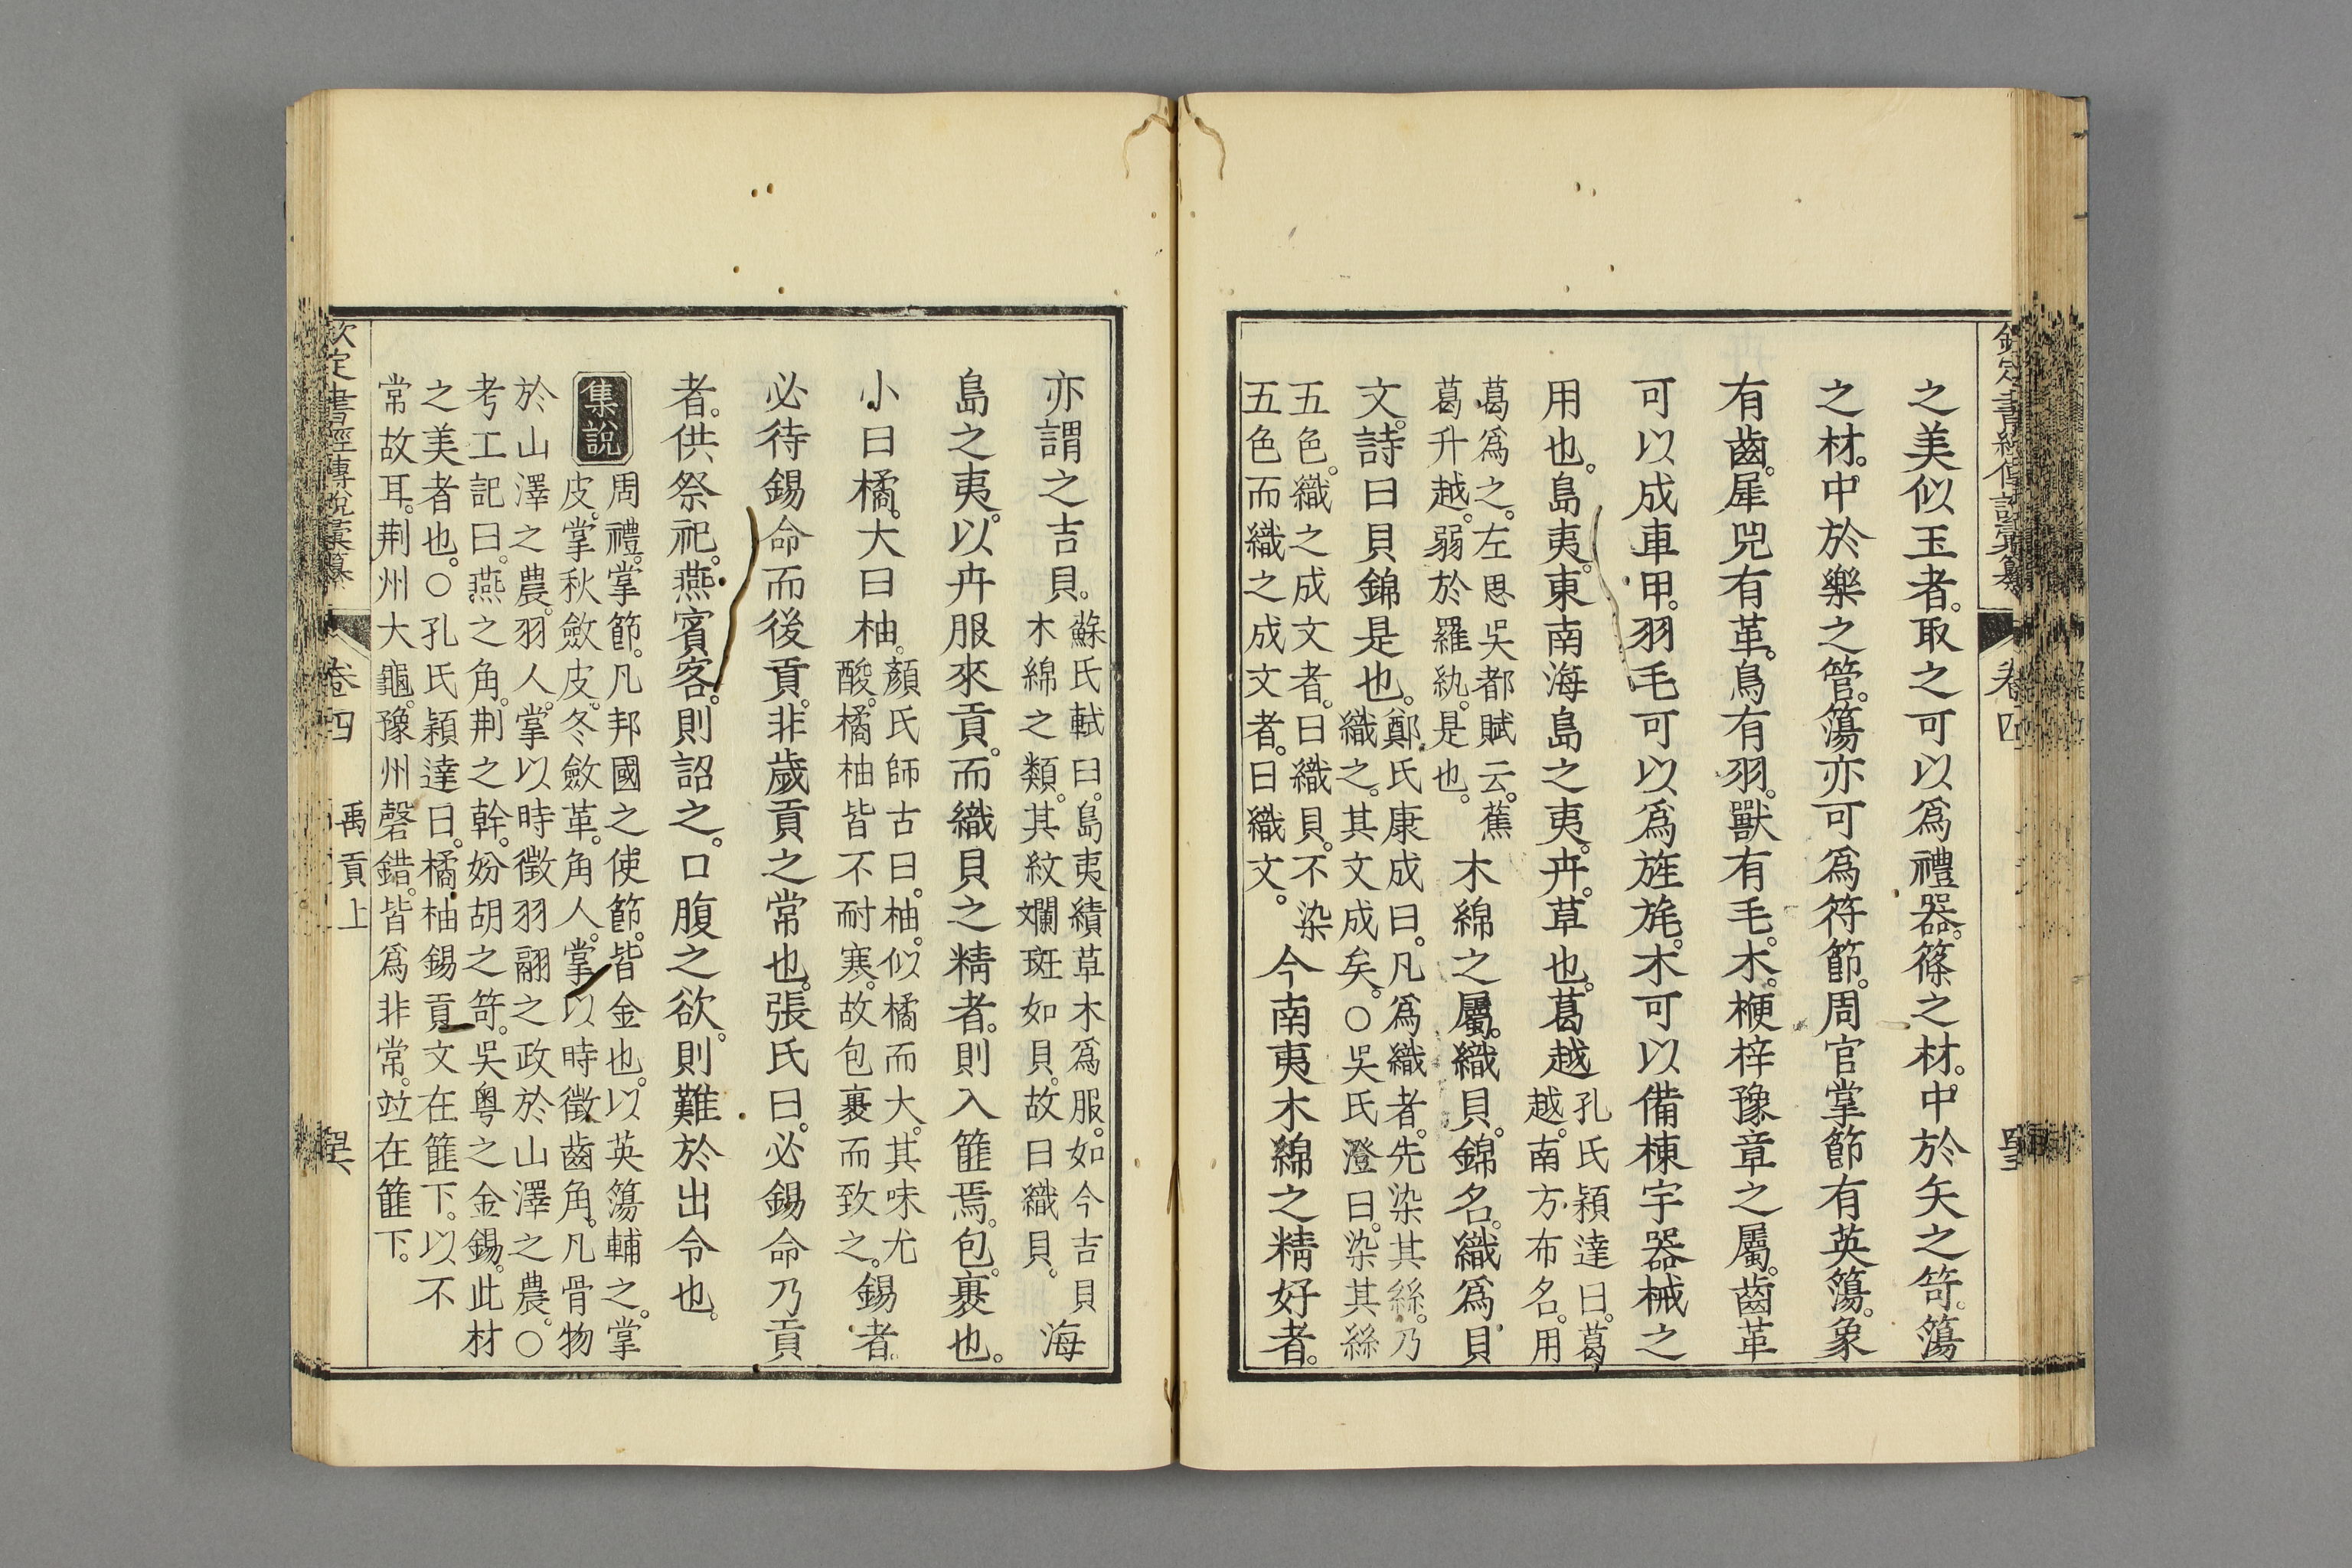 之美似玉者。取之可以爲禮器。篠之材。中於矢之笴。簜
之材。中於樂之管。簜亦可爲符節。周官掌節有英簜。象
有齒。犀兕有革。鳥有羽。獸有毛。木。楩梓豫章之屬。齒革
可以成車甲。羽毛可以爲旌旄。木可以備棟宇器械之
用也。島夷。東南海島之夷。卉。草也。葛越
孔氏穎達曰。葛
越。南方布名。用
葛爲之。左思吳都賦云。蕉
葛升越。弱於羅紈。是也。
木綿之屬。織貝。錦名。織爲貝
文。詩曰貝錦是也。
鄭氏康成曰。凡爲織者。先染其絲。乃
織之。其文成矣。○吳氏澄曰。染其絲
五色。織之成文者。曰織貝。不染
五色而織之成文者。曰織文。
今南夷木綿之精好者。
亦謂之吉貝。
蘇氏軾曰。島夷績草木爲服。如今吉貝
木綿之類。其紋斕斑如貝。故曰織貝。
海
島之夷。以卉服來貢。而織貝之精者。則入篚焉。包。裹也。
小曰橘。大曰柚。
顏氏師古曰。柚。似橘而大。其味尤
酸。橘柚皆不耐寒。故包裹而致之。
錫者。
必待錫命而後貢。非歲貢之常也。張氏曰。必錫命乃貢
者。供祭祀。燕賓客。則詔之。口腹之欲。則難於出令也。
集說
周禮。掌節。凡邦國之使節。皆金也。以英簜輔之。掌
皮。掌秋斂皮。冬斂革。角人。掌以時徵齒角。凡骨物
於山澤之農。羽人。掌以時徵羽翮之政於山澤之農。○
考工記曰。燕之角。荆之幹。妢胡之笴。吳粤之金錫。此材
之美者也。○孔氏穎達曰。橘柚錫貢。文在篚下。以不
常故耳。荆州大龜。豫州磬錯。皆爲非常。竝在篚下。
欽定書經傳說彙纂
卷四
禹貢上